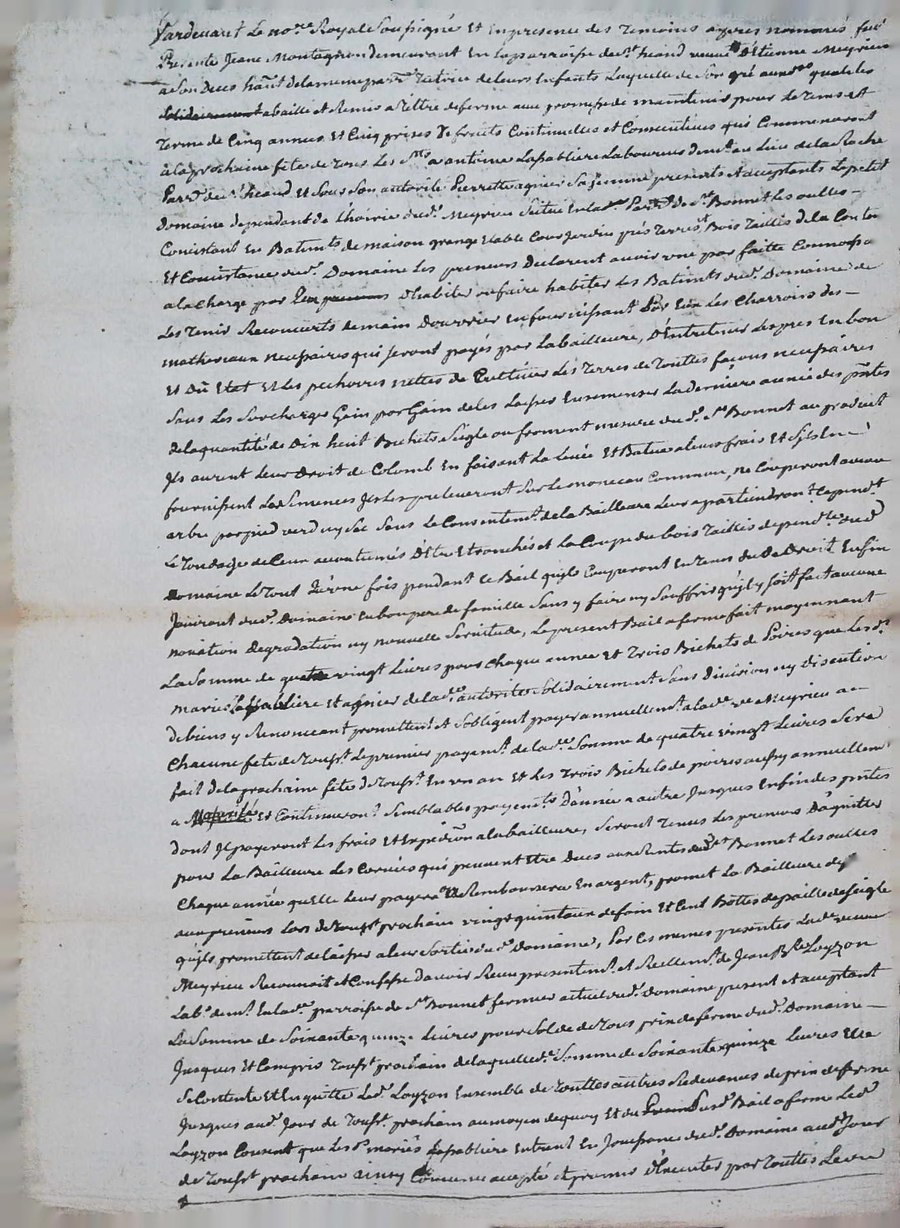 Pardevant Le no.re Royal Soussigné Et En presence des Temoins apres nommés, fut
Presente Jeane Montagnon demeurant En la parroisse de St. heand veuve d'Etienne Meyrieu
a Son deces hant. de la meme parr.e Tutrice de leurs Enfants Laquelle de Son gré aux d.es qualités
solidairement a baillé et Remis a Tittre de ferme aux promesse de maintenir pour Le Tems et
Terme de Cinq années Et Cinq prises de fruits Continuelles et Consecutives qui Commenceront
a la prochaine fête de Tous Les S.ts a antoine Lapabliere Laboureur dem.t au Lieu de la Roche
Parr.e de St. heand Et Sous Son autorité Pierrette agnier Sa femme presents et acceptants Le petit
Domaine dependant de L'hoirie dud. Meyrieu Situé En lad. Parr.e de St. Bonnet les oulles
Consistant En Batim.ts de maison grange Etable Cour Jardin prés Terres Bois Taillis de la Conten
Et Consistance dud. Domaine Les preneurs Declarent avoir une parfaitte Connoissa
a la Charge par Les preneurs d'habiter ou faire habiter Les Batiments dud. Domaine de
Les Tenir Recouverts de main D'ouvrier En fournissant Par Eux Les Charrois des
matheriaux necessaires qui Seront payés par La bailleure, D'Entretenir Les prés En bon
Et Du Etat Et Les pechoires nettes de Cultiver Les Terres de Touttes façons necessaires
Sans Les Surcharger Gain par Gain de les Laisser Ensemencées La derniere année des p.ntes
de la quantité de Dix huit Bichets Seigle ou froment mesure dud. St. Bonnet au produit
Ils auront Leur Droit de Colomb En faisant La Levée Et Batue a leurs frais Et S'ils En
fournissent Les Semences Ils Les preleveront Sur Le monceau Commun, ne Couperont aucun
arbre par pied verd ny Sec Sans Le Consentem.t de la Bailleure Leur apartiendront Cepend.t
Le Tondage de Ceux accoutumés d'Etre Etronchés et La Coupe du bois Taillis dependant dud.
Domaine Le Tout p.r une fois pendant Le Bail qu'ils Couperont En Tems dû De Droit Enfin
Jouiront dud. Domaine En bon pere de famille Sans y faire ny Souffrir qu'il y soit fait aucune
novation Degradation ny nouvelle Servitude, Le present Bail a ferme fait moyennant
La Somme de quatre vingt Livres pour Chaque année Et Trois Bichets de Poires que Les d.
mariés Lapabliere Et agnier de lad. autorité Solidairement Sans Division ny discution
de biens y Renonceant promettent et S'obligent payer annuellem.t a lad. v.e Meyrieu a
Chacune fête de Touss.t Le premier payem.t de lad. Somme de quatre vingt Livres Sera
fait de la prochaine fête de Touss.t En un an Et Les Trois Bichets de poires aussy annuellem
a Maturité Et Continueront Semblables payements d'année a autre Jusques Enfin des p.ntes
dont Ils payeront Les frais Et Expedition a la bailleure, Seront Tenus Les preneurs D'aquitter
pour La Bailleure Les Corvées qui peuvent Etre Dues aux Rentes dud. St. Bonnet Les oulles
Chaque année qu'Elle Leur payera Et Remboursera En argent, promet La Bailleure
aux preneurs Lors de Touss.t prochain vingt quintaux de foin Et Cent Bottes de paille de Seigle
qu'ils promettent de laisser a leur Sortie dud. Domaine, Par Ces memes presentes Lad. veuve
Meyrieu Reconnoit et Confesse d'avoir Reçu presentem.t et Reellem.t de Jean B.te Loyzon
Lab.r dem.t En lad. parroisse de St. Bonnet fermier actuel dud. Domaine present et acceptant
La Somme de Soixante quinze Livres pour Solde de Tous prix de ferme dud. Domaine
Jusques Et Compris Touss.t prochain de laquelle d. Somme de Soixante quinze Livres Elle
Se Contente Et En quitte Led. Loyzon Ensemble de Touttes autres Redevances de prix de ferme
Jusques aud. Jour de Touss.t prochain au moyen de quoy Et du Present Bail a ferme Led.
Loyzon Consent que Les d. mariés Lapabliere Entrent En Jouissance dud. Domaine aud. Jour
de Touss.t prochain ainsy Convenu accepté et promis d'Executer par Touttes Leurs